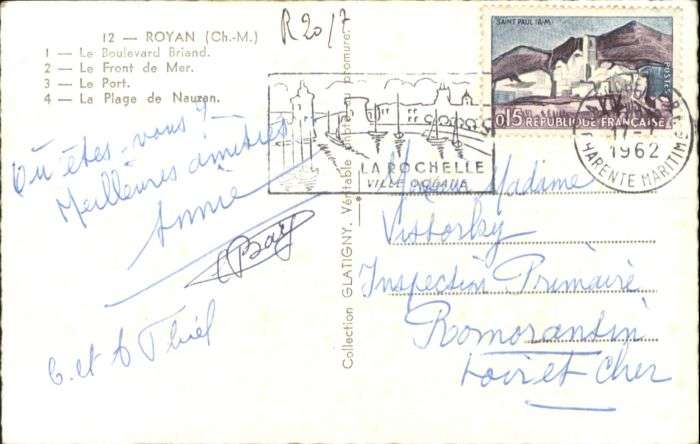 12 — ROYAN (Ch.-M.)
1 — Le Boulevard Briand.
2 — Le Front de Mer.
3 — Le Port.
4 — La Plage de Nauzan.
R 20/7
Où êtes-vous ?
Meilleures amitiés
Annie
Bary
C. et A Thiel
Collection GLATIGNY. Véritable photo au bromure.
LA ROCHELLE
VILLE OCÉANE
SAINT PAUL (A-M)
POSTES
0,15 RÉPUBLIQUE FRANÇAISE
1962
CHARENTE MARITIME
Madame
Vittorky
Inspection Primaire
Romorantin
Loir et Cher